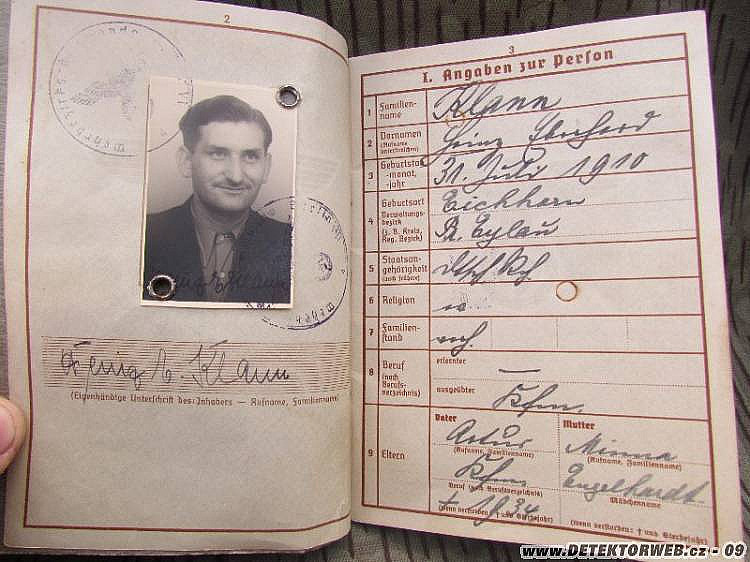 2
Heinz E. Klann
(Eigenhändige Unterschrift des Inhabers — Rufname, Familienname)
3
I. Angaben zur Person
1 Familien-
name
Klann
2 Vornamen
(Rufname
unterstreichen)
Heinz Eberhard
3 Geburtstag,
-monat,
-jahr
31. Juli 1910
4 Geburtsort
Verwaltungs-
bezirk
(z. B. Kreis,
Reg. Bezirk)
Eichhorn
Pr. Eylau
5 Staatsan-
gehörigkeit
(auch frühere)
6 Religion
7 Familien-
stand
8 Beruf
(nach
Berufs-
verzeichnis)
erlernter
—
ausgeübter
Kfm.
9 Eltern
Vater
Artur
(Rufname, Familienname)
Kfm
Beruf (nach Berufsverzeichnis)
† 1934
(wenn verstorben: † und Sterbejahr)
Mutter
Minna
(Rufname, Familienname)
Engelhardt
Mädchenname
(wenn verstorben: † und Sterbejahr)
www.DETEKTORWEB.cz - 09